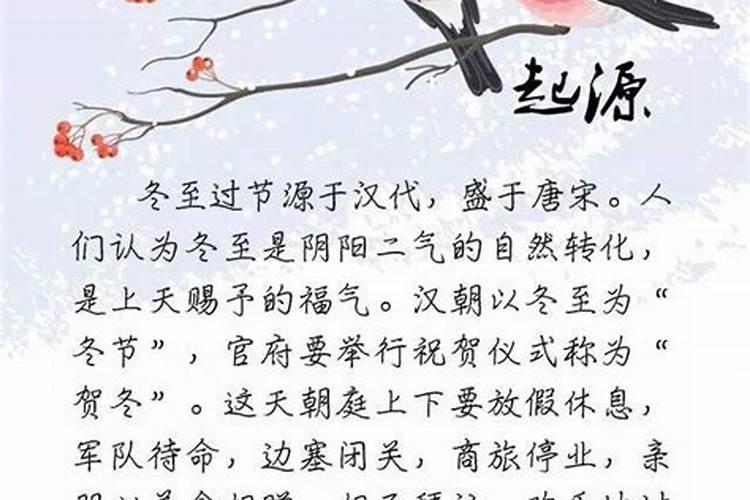 起源
冬至过节源于汉代，盛于唐宋。人
们认为冬至是阴阳二气的自然转化，
是上天赐予的福气。汉朝以冬至为“
冬节”，官府要举行祝贺仪式称为“
贺冬”。这天朝庭上下要放假休息，
军队待命，边塞闭关，商旅停业，亲